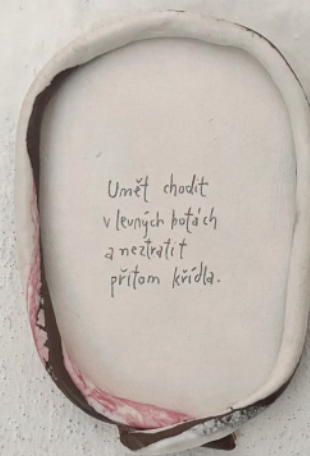 Umět chodit
v levných botách
a neztratit
přitom křídla.